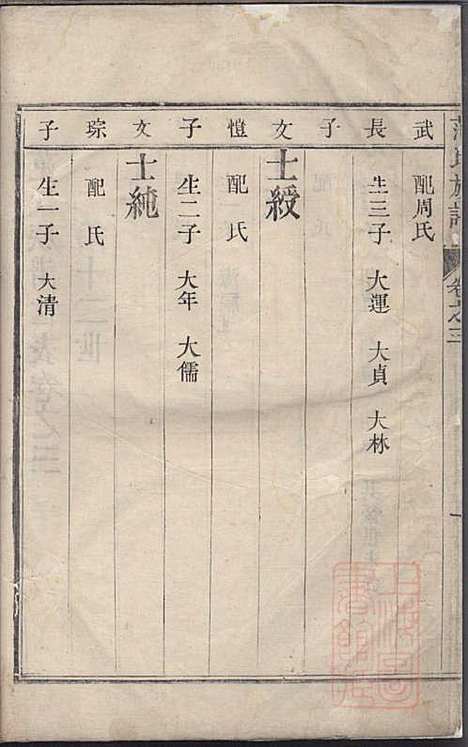 氏族譜
卷之三
武 配周氏
長 生三子 大運 大貞 大林
子
文 士綬
愷 配 氏
子 生二子 大年 大儒
文 士純
琮 配 氏
子 生一子 大清